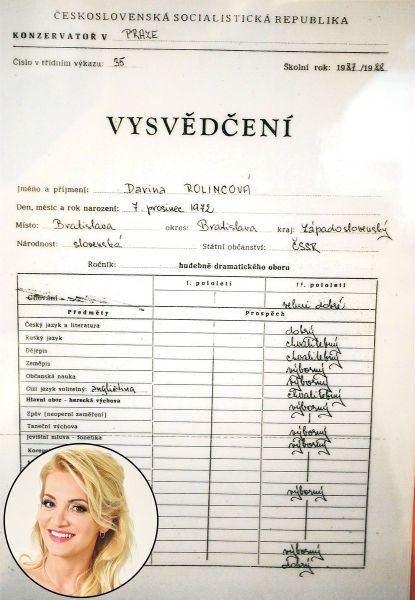 ČESKOSLOVENSKÁ SOCIALISTICKÁ REPUBLIKA
KONZERVATOŘ V PRAZE
Číslo v třídním výkazu: 35 Školní rok: 1987/1988
VYSVĚDČENÍ
Jméno a příjmení: Darina ROLINCOVÁ
Den, měsíc a rok narození: 7. prosinec 1972
Místo: Bratislava okres: Bratislava kraj: Západoslovenský
Národnost: slovenská Státní občanství: ČSSR
Ročník: hudebně dramatického oboru
I. pololetí II. pololetí
Chování velmi dobré
Předměty Prospěch
Český jazyk a literatura dobrý
Ruský jazyk chvalitebný
Dějepis chvalitebný
Zeměpis výborný
Občanská nauka výborný
Cizí jazyk volitelný: angličtina chvalitebný
Hlavní obor - herecká výchova výborný
Zpěv (neoperní zaměření)
Taneční výchova výborný
Jevištní mluva - fonetika výborný
výborný
výborný
dobrý